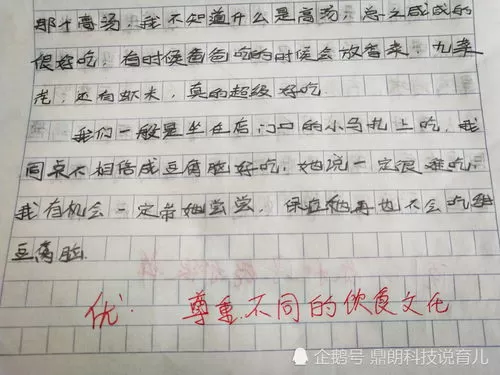 那个高汤，我不知道什么是高汤，总之咸咸的
很好吃，有时候爸爸吃的时候会放香菜，九菜
花，还有虾米，真的超级好吃.
我们一般是坐在店门口的小马扎上吃，我
同桌不相信咸豆腐脑好吃，她说一定很难吃，
我有机会一定带她尝尝，保证她再也不会吃甜
豆腐脑.
优. 尊重不同的饮食文化
企鹅号 鼎朗科技说育儿